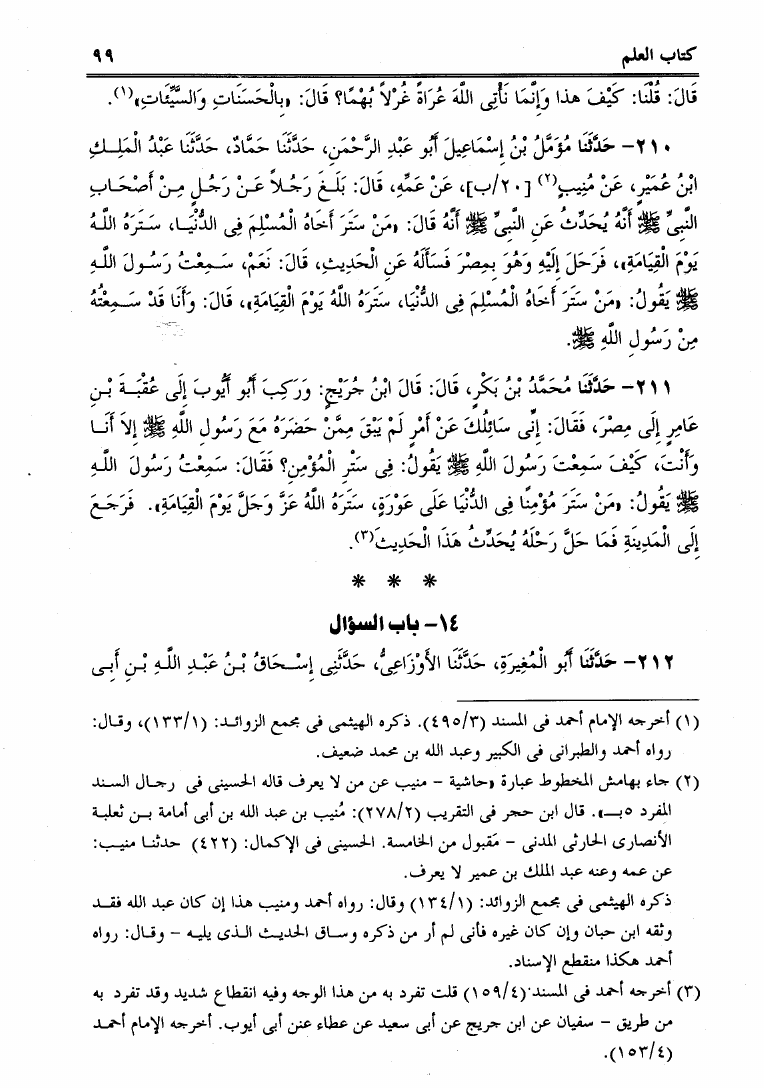 كتاب العلم ٩٩
قَالَ: قُلْنَا: كَيْفَ هذا وَإِنَّمَا نَأْتِى اللَّهَ عُرَاةً غُرْلاً بُهْمًا؟ قَالَ: «بِالْحَسَنَاتِ وَالسَّيِّئَاتِ»(١).
٢١٠- حَدَّثَنَا مُؤَمَّلُ بْنُ إِسْمَاعِيلَ أَبُو عَبْدِ الرَّحْمَنِ، حَدَّثَنَا حَمَّادٌ، حَدَّثَنَا عَبْدُ الْمَلِكِ
ابْنُ عُمَيْرٍ، عَنْ مُنِيبٍ(٢) [٢٠/ب]، عَنْ عَمِّهِ، قَالَ: بَلَغَ رَجُلاً عَنْ رَجُلٍ مِنْ أَصْحَابِ
النَّبِىِّ ﷺ أَنَّهُ يُحَدِّثُ عَنِ النَّبِىِّ ﷺ أَنَّهُ قَالَ: «مَنْ سَتَرَ أَخَاهُ الْمُسْلِمَ فِى الدُّنْيَا، سَتَرَهُ اللَّهُ
يَوْمَ الْقِيَامَةِ»، فَرَحَلَ إِلَيْهِ وَهُوَ بِمِصْرَ فَسَأَلَهُ عَنِ الْحَدِيثِ، قَالَ: نَعَمْ، سَمِعْتُ رَسُولَ اللَّهِ
ﷺ يَقُولُ: «مَنْ سَتَرَ أَخَاهُ الْمُسْلِمَ فِى الدُّنْيَا، سَتَرَهُ اللَّهُ يَوْمَ الْقِيَامَةِ»، قَالَ: وَأَنَا قَدْ سَمِعْتُهُ
مِنْ رَسُولِ اللَّهِ ﷺ.
٢١١- حَدَّثَنَا مُحَمَّدُ بْنُ بَكْرٍ، قَالَ: قَالَ ابْنُ جُرَيْجٍ: وَرَكِبَ أَبُو أَيُّوبَ إِلَى عُقْبَةَ بْنِ
عَامِرٍ إِلَى مِصْرَ، فَقَالَ: إِنِّى سَائِلُكَ عَنْ أَمْرٍ لَمْ يَبْقَ مِمَّنْ حَضَرَهُ مَعَ رَسُولِ اللَّهِ ﷺ إِلاَ أَنَا
وَأَنْتَ، كَيْفَ سَمِعْتَ رَسُولَ اللَّهِ ﷺ يَقُولُ: فِى سَتْرِ الْمُؤْمِنِ؟ فَقَالَ: سَمِعْتُ رَسُولَ اللَّهِ
ﷺ يَقُولُ: «مَنْ سَتَرَ مُؤْمِنًا فِى الدُّنْيَا عَلَى عَوْرَةٍ، سَتَرَهُ اللَّهُ عَزَّ وَجَلَّ يَوْمَ الْقِيَامَةِ». فَرَجَعَ
إِلَى الْمَدِينَةِ فَمَا حَلَّ رَحْلَهُ يُحَدِّثُ هَذَا الْحَدِيثَ(٣).
* * *
١٤- باب السؤال
٢١٢- حَدَّثَنَا أَبُو الْمُغِيرَةِ، حَدَّثَنَا الأَوْزَاعِىُّ، حَدَّثَنِى إِسْحَاقُ بْنُ عَبْدِ اللَّهِ بْنِ أَبِى
(١) أخرجه الإمام أحمد فى المسند (٤٩٥/٣). ذكره الهيثمى فى مجمع الزوائد: (١٣٣/١)، وقال:
رواه أحمد والطبرانى فى الكبير وعبد الله بن محمد ضعيف.
(٢) جاء بهامش المخطوط عبارة «حاشية - منيب عن من لا يعرف قاله الحسينى فى رجال السند
المفرد ٥ب». قال ابن حجر فى التقريب (٢٧٨/٢): مُنيب بن عبد الله بن أبى أمامة بن ثعلبة
الأنصارى الحارثى المدنى - مَقبول من الخامسة. الحسينى فى الإكمال: (٤٢٢) حدثنا منيب:
عن عمه وعنه عبد الملك بن عمير لا يعرف.
ذكره الهيثمى فى مجمع الزوائد: (١٣٤/١) وقال: رواه أحمد ومنيب هذا إن كان عبد الله فقد
وثقه ابن حبان وإن كان غيره فأنى لم أر من ذكره وساق الحديث الذى يليه - وقال: رواه
أحمد هكذا منقطع الإسناد.
(٣) أخرجه أحمد فى المسند (١٥٩/٤) قلت تفرد به من هذا الوجه وفيه انقطاع شديد وقد تفرد به
من طريق - سفيان عن ابن جريج عن أبى سعيد عن عطاء عنن أبى أيوب. أخرجه الإمام أحمد
(١٥٣/٤).